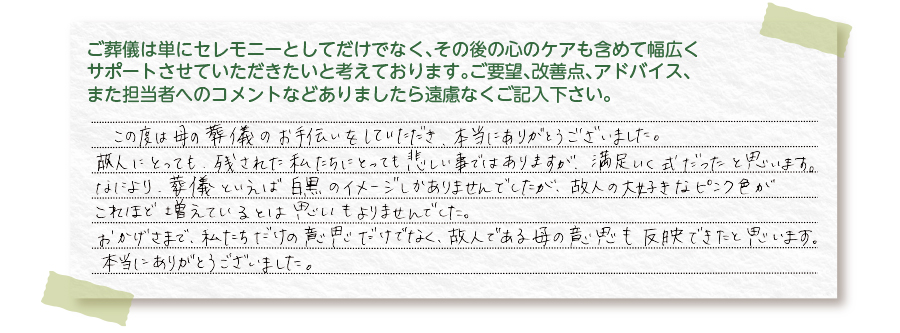 ご葬儀は単にセレモニーとしてだけでなく、その後の心のケアも含めて幅広く
サポートさせていただきたいと考えております。ご要望、改善点、アドバイス、
また担当者へのコメントなどありましたら遠慮なくご記入下さい。
この度は母の葬儀のお手伝いをしていただき、本当にありがとうございました。
故人にとっても、残された私たちにとっても悲しい事ではありますが、満足いく式だったと思います。
なにより、葬儀といえば白黒のイメージしかありませんでしたが、故人の大好きなピンク色が
これほど増えているとは思いもよりませんでした。
おかげさまで、私たちだけの意思だけでなく、故人である母の意思も反映できたと思います。
本当にありがとうございました。